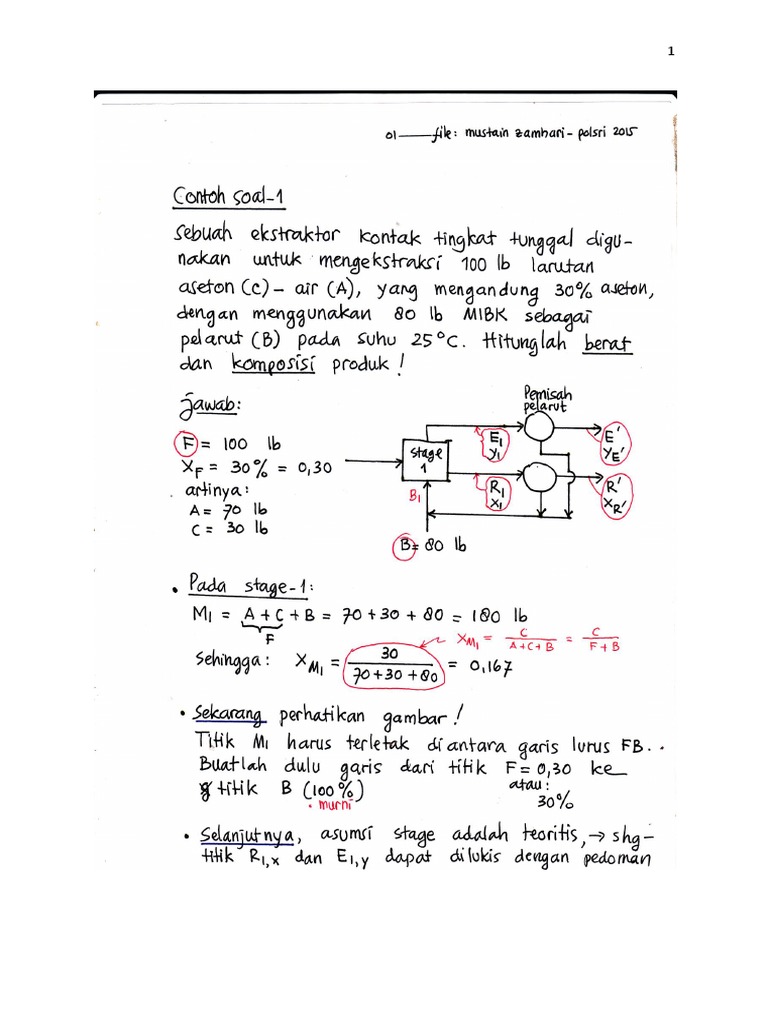 1
01 —— file: mustain zamhari - polsri 2015
Contoh soal-1
Sebuah ekstraktor kontak tingkat tunggal digu-
nakan untuk mengekstraksi 100 lb larutan
aseton (C) - air (A), yang mengandung 30% aseton,
dengan menggunakan 80 lb MIBK sebagai
pelarut (B) pada suhu 25°C. Hitunglah berat
dan komposisi produk!
Jawab:
F = 100 lb
XF = 30% = 0,30
artinya:
A = 70 lb
C = 30 lb
Pemisah
pelarut
stage
1
E1
y1
E'
yE'
R1
x1
R'
xR'
B1
B = 80 lb
• Pada stage-1:
M1 = A + C + B = 70 + 30 + 80 = 180 lb
F
XM1 = C / (A+C+B) = C / (F+B)
Sehingga: XM1 = 30 / (70+30+80) = 0,167
• Sekarang perhatikan gambar!
Titik M1 harus terletak diantara garis lurus FB..
Buatlah dulu garis dari titik F = 0,30 ke
atau: 30%
titik B (100%)
• murni
• Selanjutnya, asumsi stage adalah teoritis, → shg-
titik R1,x dan E1,y dapat dilukis dengan pedoman